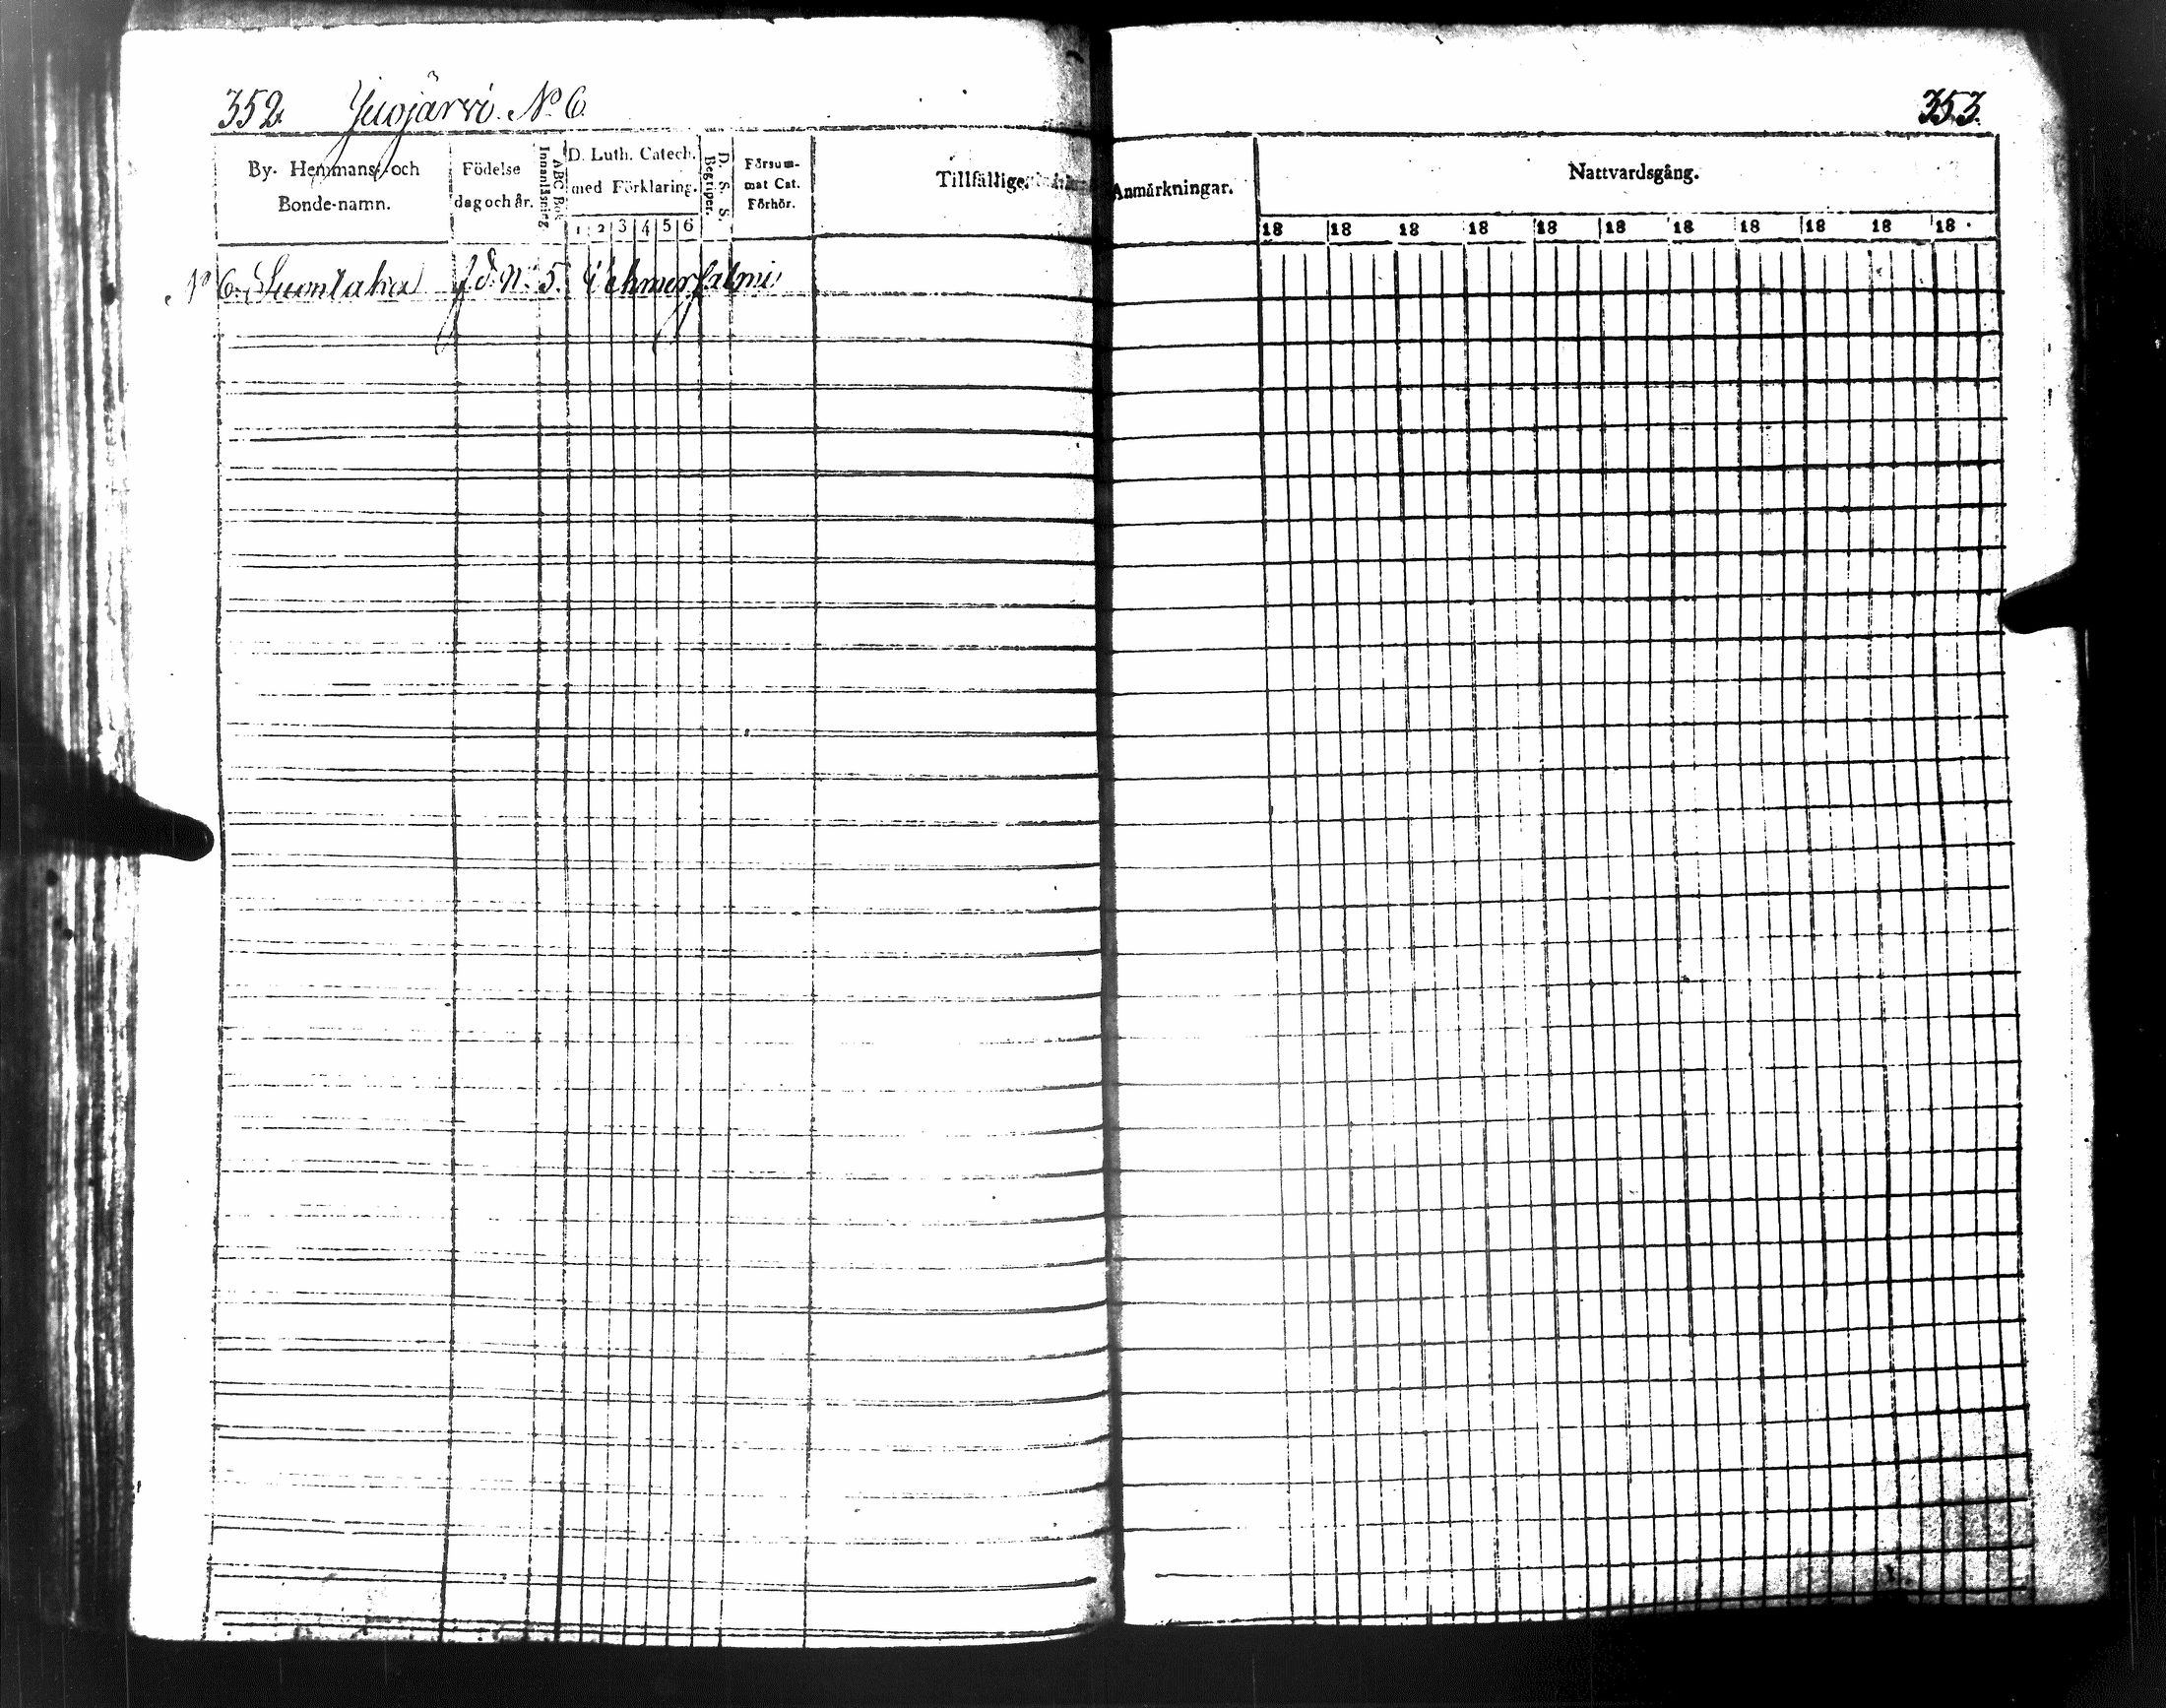 352. Juojärvi. No 6.
353.
By- Hemmans- och Bonde-namn.
Födelse dag och år.
ABC Bok Innanläsning
D. Luth. Catech. med Förklaring.
1 2 3 4 5 6
D. S. S. Begriper.
Försum- mat Cat. Förhör.
Tillfällige
Anmärkningar.
Nattvardsgång.
18 18 18 18 18 18 18 18 18 18 18
No 6. Suontaka f. d. N. 5. Vehmersalmi